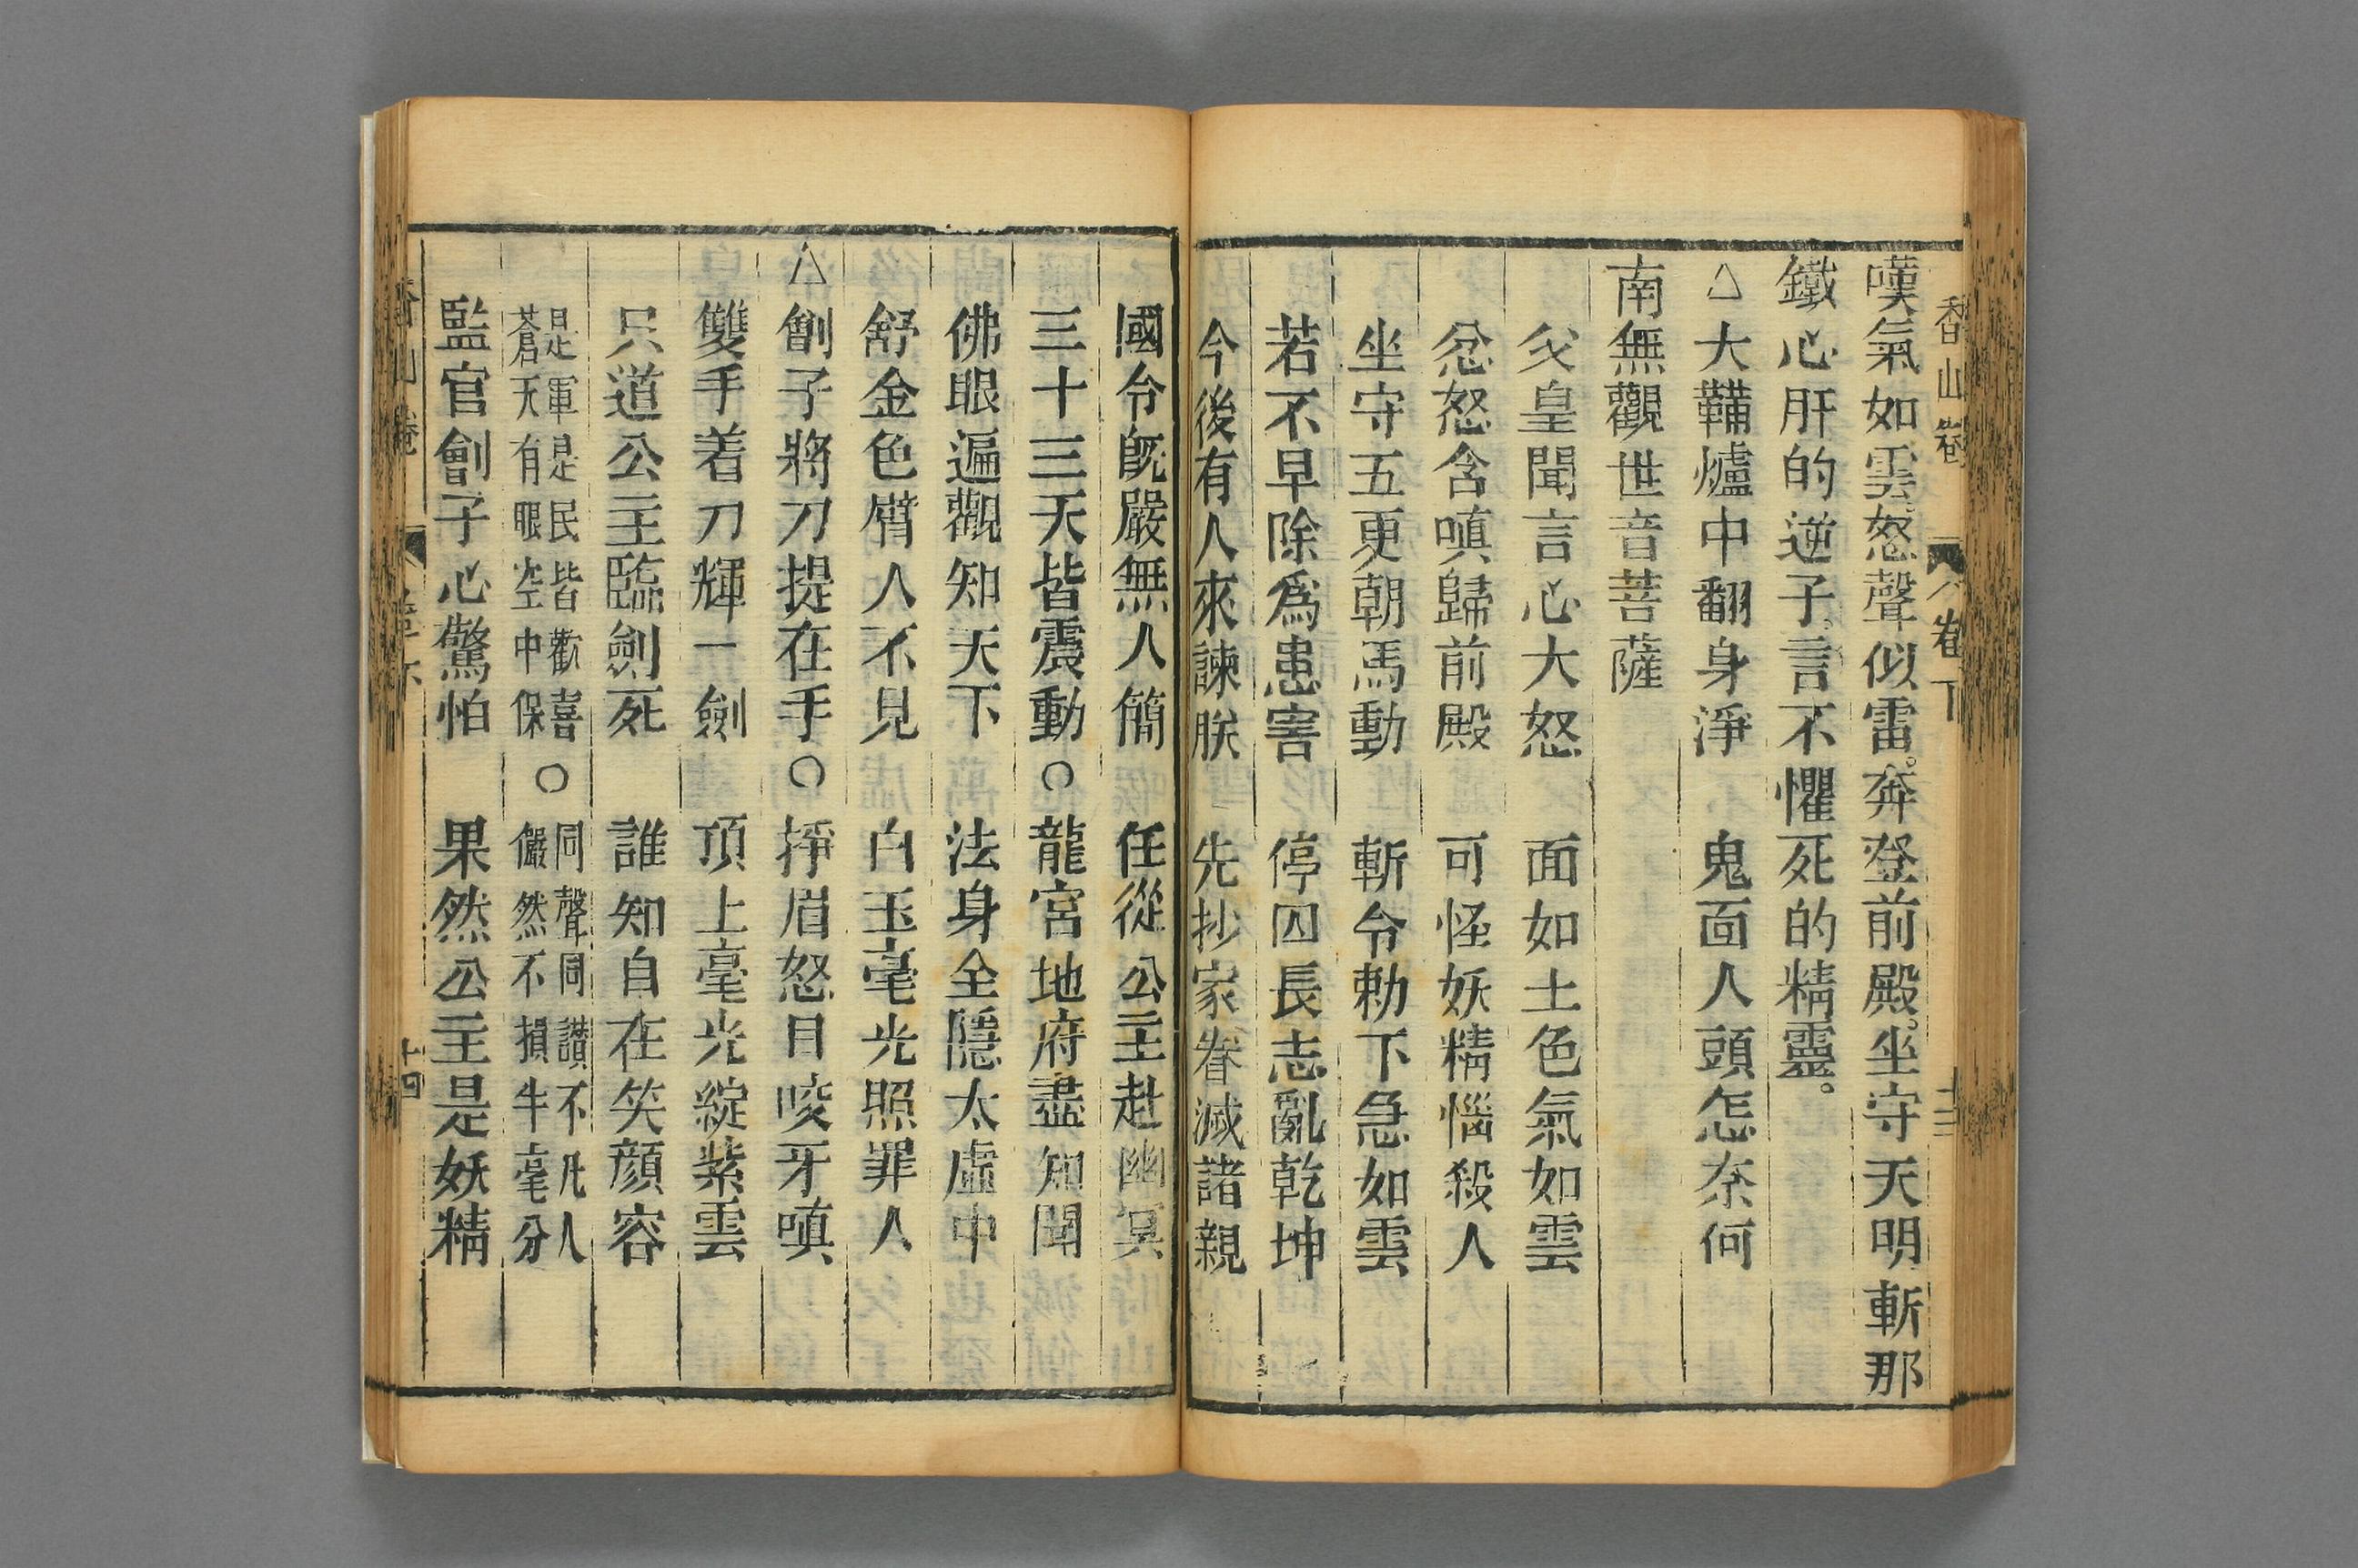 香山卷 卷下 十三
嘆氣如雲怒聲似雷。奔登前殿。坐守天明斬那
鐵心肝的逆子。言不懼死的精靈。
△大鞴爐中翻身淨 鬼面人頭怎奈何
南無觀世音菩薩
父皇聞言心大怒 面如土色氣如雲
忿怒含嗔歸前殿 可怪妖精惱殺人
坐守五更朝馬動 斬令勅下急如雲
若不早除爲患害 停囚長志亂乾坤
今後有人來諫朕 先抄家眷滅諸親
國令旣嚴無人簡 任從公主赴幽冥
三十三天皆震動○龍宮地府盡知聞
佛眼遍觀知天下 法身全隱太虛中
舒金色臂人不見 白玉毫光照罪人
△劊子將刀提在手○掙眉怒目咬牙嗔
雙手着刀輝一劍 頂上毫光綻紫雲
只道公主臨劍死 誰知自在笑顏容
是軍是民皆歡喜 同聲同讃不凡人
蒼天有眼空中保○儼然不損牛毫分
監官劊子心驚怕 果然公主是妖精
香山卷 卷下 十四